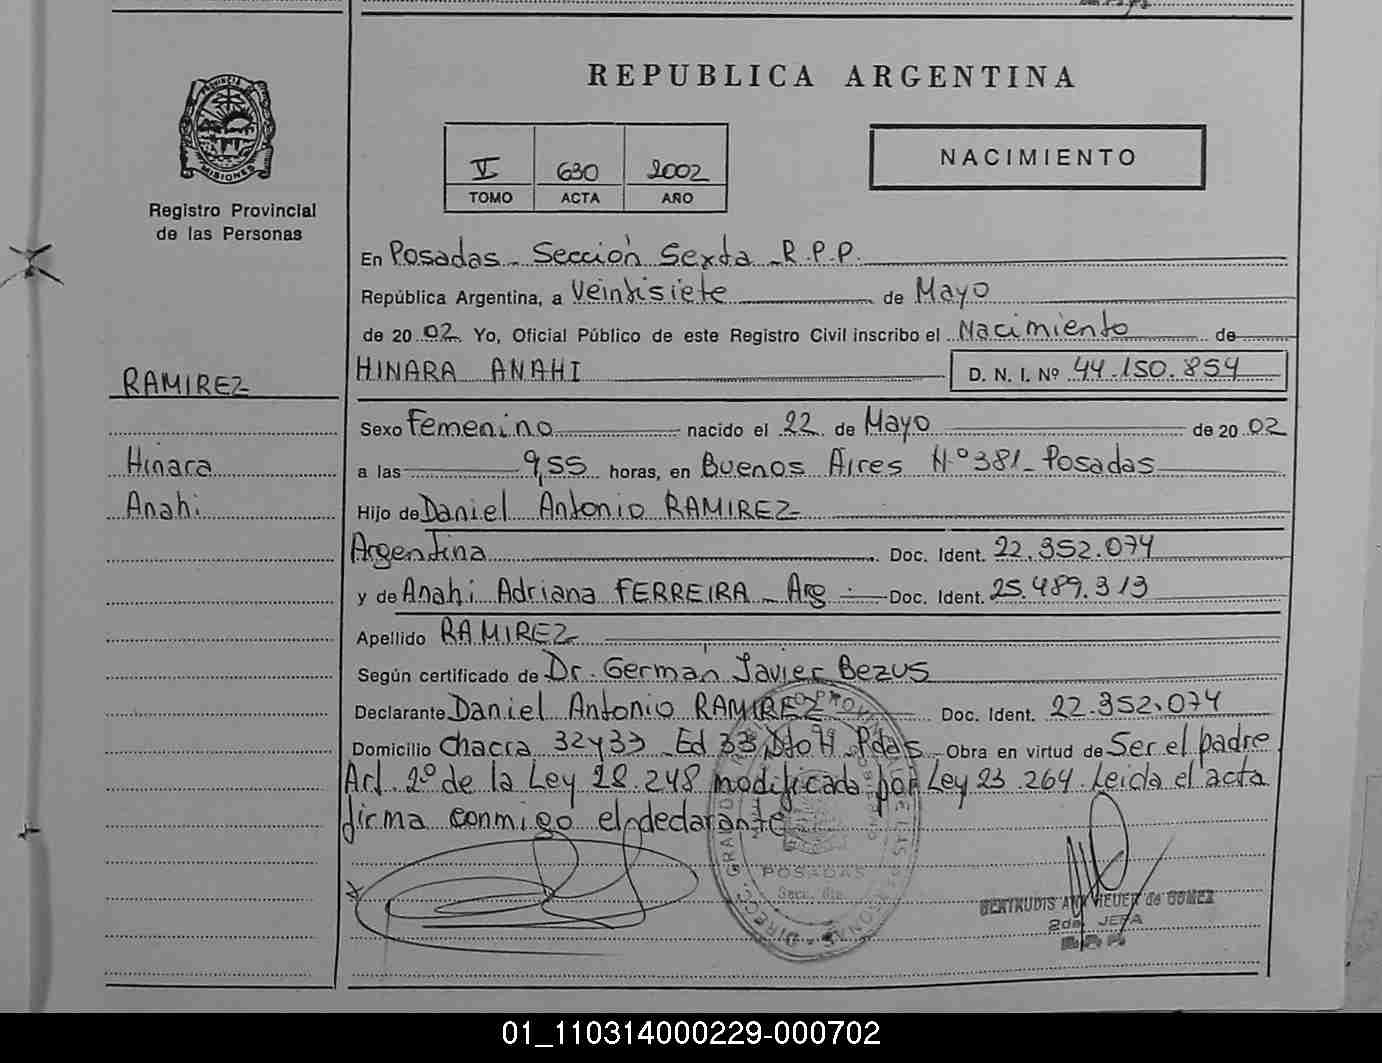 REPUBLICA ARGENTINA
PROVINCIA DE
MISIONES
Registro Provincial
de las Personas
V 630 2002
TOMO ACTA AÑO
NACIMIENTO
En Posadas - Sección Sexta - R.P.P.
República Argentina, a Veintisiete de Mayo
de 20 02 Yo, Oficial Público de este Registro Civil inscribo el Nacimiento de
HINARA ANAHI D. N. I. Nº 44.150.854
RAMIREZ
Hinara
Anahi
Sexo Femenino nacido el 22 de Mayo de 20 02
a las 9,55 horas, en Buenos Aires N.º 381 - Posadas
Hijo de Daniel Antonio RAMIREZ
Argentina Doc. Ident. 22.352.074
y de Anahi Adriana FERREIRA - Arg - Doc. Ident. 25.489.313
Apellido RAMIREZ
Según certificado de Dr. Germán Javier Bezus
Declarante Daniel Antonio RAMIREZ Doc. Ident. 22.352.074
Domicilio Chacra 32 y 33 - Ed 33 Dto H Pdas - Obra en virtud de Ser el padre
Art. 2º de la Ley 18.248 modificada por Ley 23.264. Leida el acta
firma conmigo el declarante
POSADAS
Secc. 6ta.
GERTRUDIS de GOMEZ
2da JEFA
01_110314000229-000702